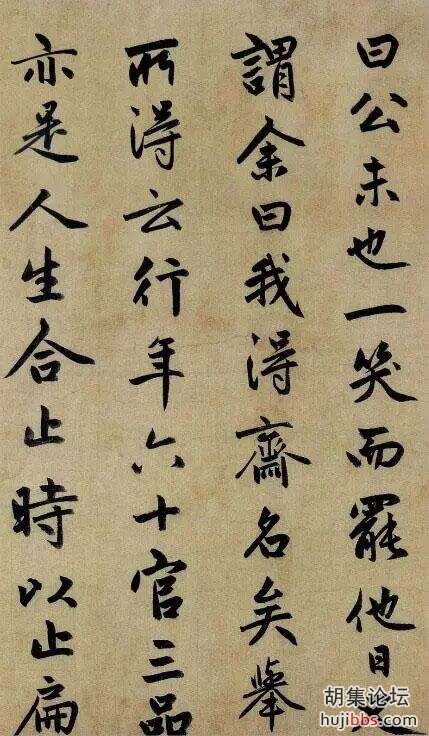 曰公未也一笑而罷他日
謂余曰我得齋名矣舉
所得云行年六十官三品
亦是人生合止時以止扁
胡集论坛
hujibbs.com